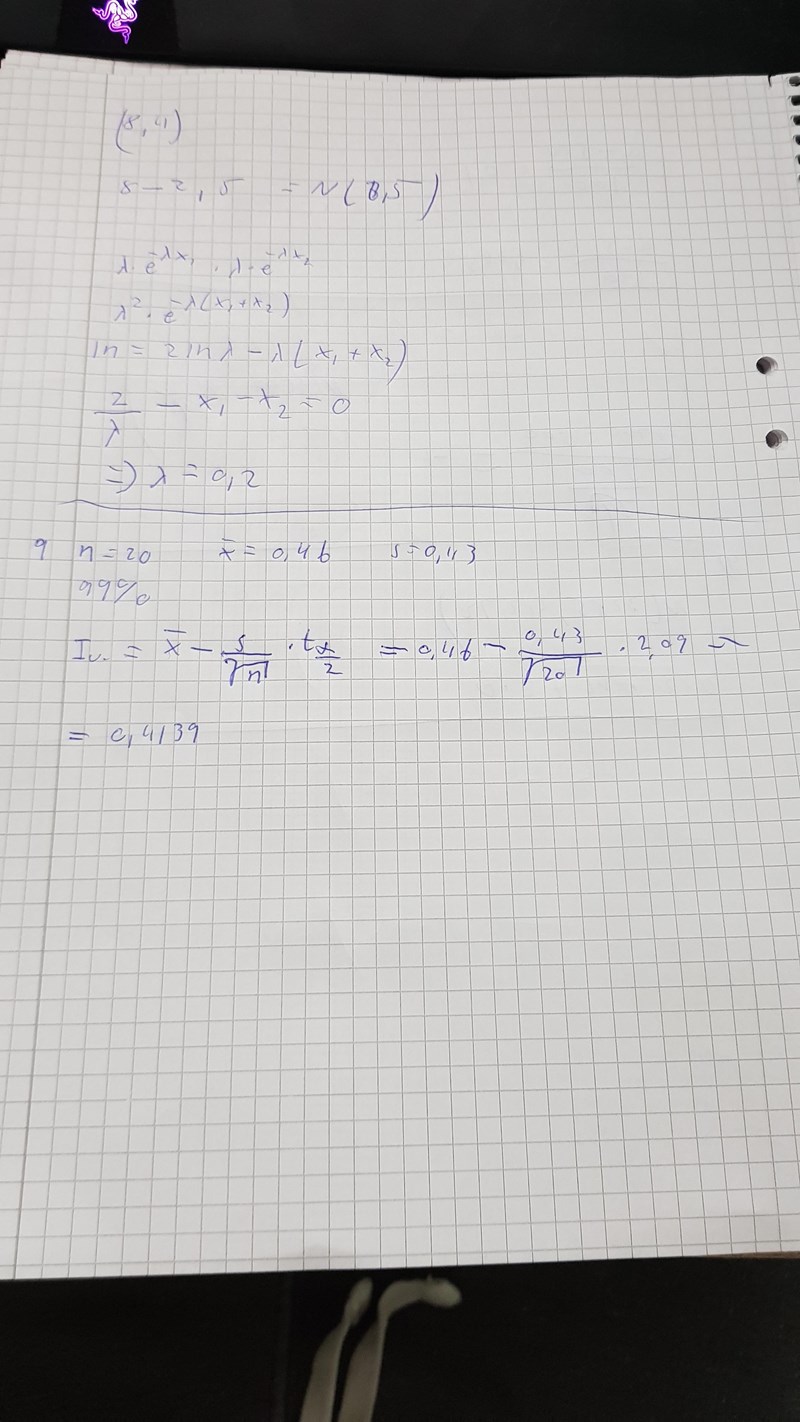 (8,4)
8-2,5 = N(8,5)
λ·e^-λx₁ · λ·e^-λx₂
λ²·e^-λ(x₁+x₂)
ln = 2lnλ - λ(x₁+x₂)
2/λ - x₁ - x₂ = 0
=> λ = 0,2
9 n=20 x̄=0,46 s=0,43
99%
= x̄ - s/√n · t α/2 = 0,46 - 0,43/√20 · 2,09
= 0,4139